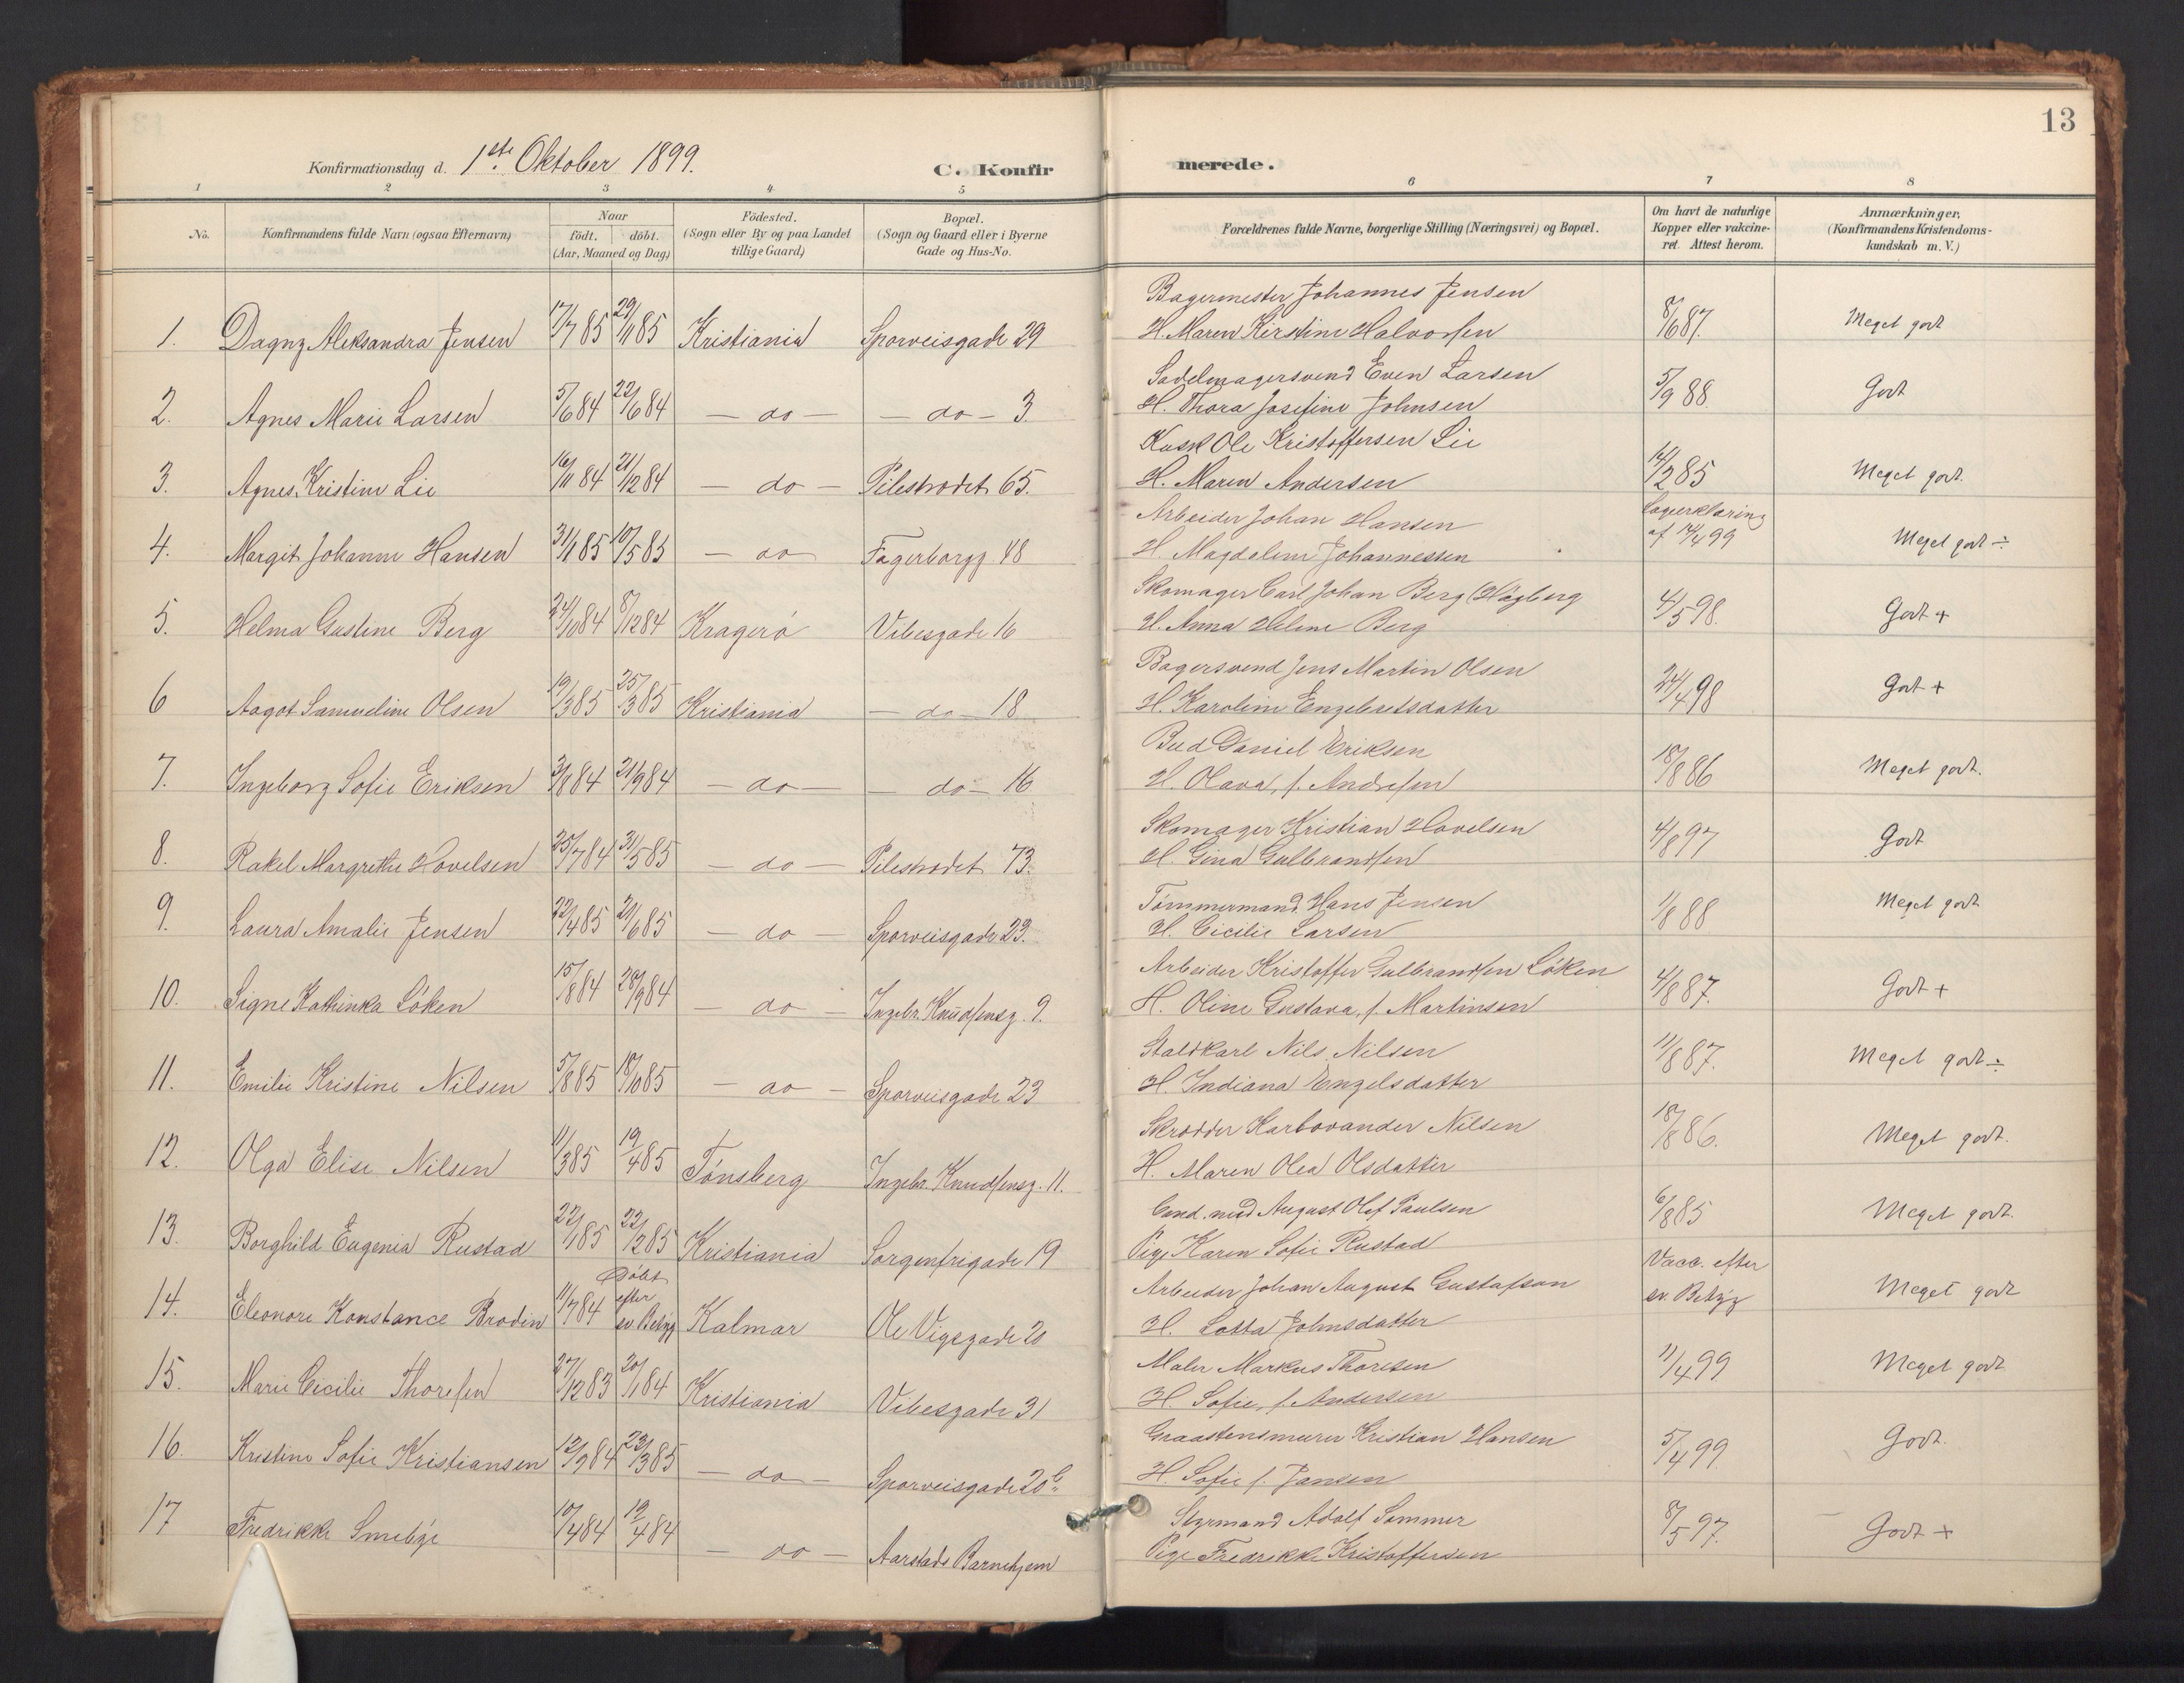 13
Konfirmationsdag d. 1ste Oktober 1899.
C. Konfir merede.
1 2 3 4 5 6 7 8
No.
Konfirmandens fulde Navn (ogsaa Efternavn)
Naar
födt. döbt.
(Aar, Maaned og Dag)
Födested.
(Sogn eller By og paa Landet
tillige Gaard)
Bopæl.
(Sogn og Gaard eller i Byerne
Gade og Hus-No.
Forældrenes fulde Navne, borgerlige Stilling (Næringsvei) og Bopæl.
Om havt de naturlige
Kopper eller vakcine-
ret. Attest herom.
Anmærkninger.
(Konfirmandens Kristendoms-
kundskab m. V.)
Bagermester Johannes Jensen
1. Dagny Aleksandra Jensen 17/7 85 29/11 85 Kristiania Sporveisgade 29 H. Maren Kirstine Halvorsen 8/6 87. Meget godt
Sadelmagersvend Even Larsen
2. Agnes Marie Larsen 5/6 84 22/6 84 — do — — do — 3. H. Thora Josefine Johnsen 5/9 88. Godt
Kusk Ole Kristoffersen Lie
3. Agnes Kristine Lie 16/11 84 21/12 84 — do — Pilestrædet 65. H. Maren Andersen 14/2 85 Meget godt.
Arbeider Johan Hansen Lægerklæring
4. Margit Johanne Hansen 31/1 85 10/5 85 — do — Fagerborgg. 48 H. Magdalene Johannessen af 14/4 99 Meget godt ÷
Skomager Carl Johan Berg (Högberg
5. Helma Gustine Berg 24/10 84 8/12 84 Kragerö Vibesgade 16 H. Anna Helene Berg 4/5 98. Godt +
Bagersvend Jens Martin Olsen
6 Aagot Samueline Olsen 19/3 85 25/3 85 Kristiania — do — 18 H. Karoline Engebretsdatter 24/4 98 Godt +
Bud Daniel Eriksen
7. Ingeborg Sofie Eriksen 3/8 84 21/9 84 — do — — do — 16 H. Olava, f. Andresen 18/8 86 Meget godt.
Skomager Kristian Hovelsen
8. Rakel Margrethe Hovelsen 25/7 84 31/5 85 — do — Pilestrædet 73. H. Gina Gulbrandsen 4/8 97 Godt
Tömmermand Hans Jensen
9. Laura Amalie Jensen 22/4 85 21/6 85 — do — Sporveisgade 23. H. Cicilie Larsen 1/8 88 Meget godt
Arbeider Kristoffer Gulbrandsen Löken
10. Signe Kathinka Löken 15/8 84 28/9 84 — do — Ingebr. Knudsensg. 9. H. Oline Gustava, f. Martinsen 4/8 87. Godt +
Staldkarl Nils Nilsen
11. Emilie Kristine Nilsen 5/8 85 18/10 85 — do — Sporveisgade 23 H. Indiana Engelsdatter 11/8 87. Meget godt ÷
Skrædder Nilsen
12. Olga Elise Nilsen 11/3 85 19/4 85 Tönsberg Ingebr. Knudsensg. 11. H. Maren Olea Olsdatter 18/8 86. Meget godt.
Cand. med August Olef Paulsen
13. Borghild Eugenia Rustad 22/1 85 22/12 85 Kristiania Sorgenfrigade 19 Pige Karen Sofie Rustad 6/8 85 Meget godt.
Döbt Arbeider Johan August Gustafson Vacc. efter
14. Eleonore Konstance Brodin 11/7 84 efter sv. Betyg Kalmar Ole Vigsgade 20 H. Lotta Johnsdatter sv. Betyg Meget godt
Maler Markus Thoresen
15. Marie Cicilie Thoresen 27/12 83 20/1 84 Kristiania Vibesgade 31 H. Sofie, f. Andersen 11/4 99 Meget godt
Graastensmurer Kristian Hansen
16. Kristine Sofie Kristiansen 12/9 84 22/3 85 — do — Sporveisgade 20 H. Sofie f. Jansen 5/4 99 Godt.
Styrmand Adolf Sommer
17 Fredrikke Smebye 10/4 84 19/4 84 — do — Aarstads Barnehjem Pige Fredrikke Kristoffersen 8/5 97. Godt +